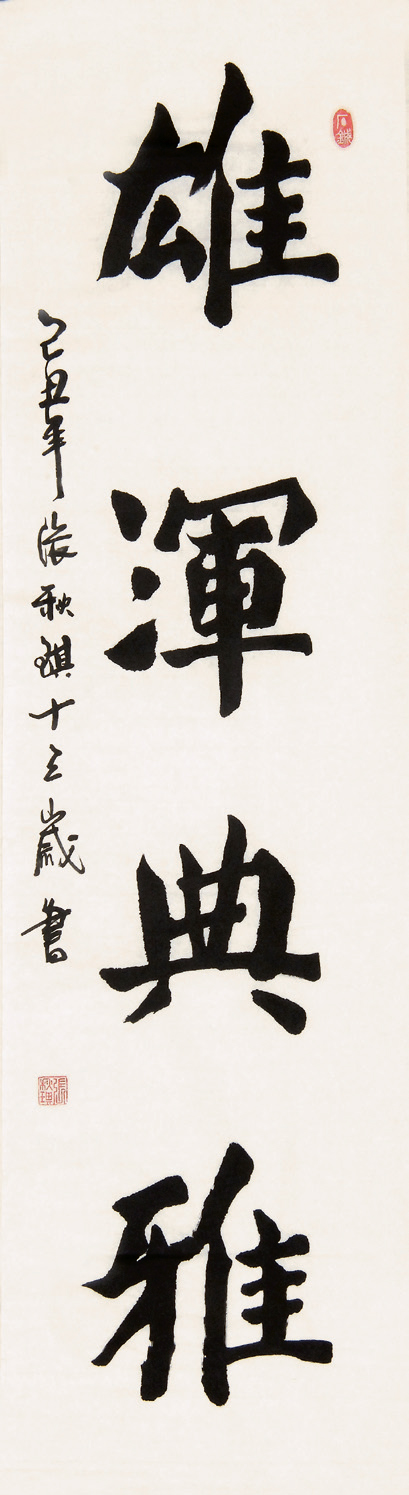 雄渾典雅
己丑年張秋琪十三歲書